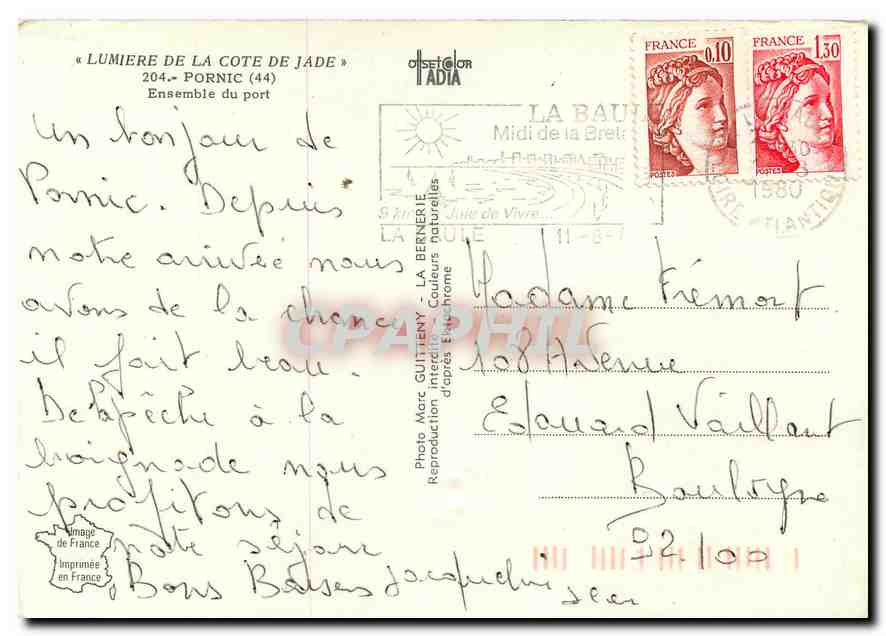 « LUMIERE DE LA COTE DE JADE »
204.- PORNIC (44)
Ensemble du port
OFFSET COLOR
IADIA
Un bonjour de
Pornic. Depuis
notre arrivée nous
avons de la chance
il fait beau.
De la pêche à la
baignade nous
profitons de
notre séjour
Bons Baisers Jacqueline
Jean
Image
de France
Imprimée
en France
Photo Marc GUITTENY - LA BERNERIE
Reproduction interdite - Couleurs naturelles
d'après Ektachrome
LA BAUL
Midi de la Breta
9 km Joie de Vivre...
LA BAULE
11-8-
1980
LOIRE ATLANTIQUE
FRANCE
0,10
POSTES
FRANCE
1,30
POSTES
CPAPHIL
Madame Frémort
108 Avenue
Edouard Vaillant
Boulogne
92.100